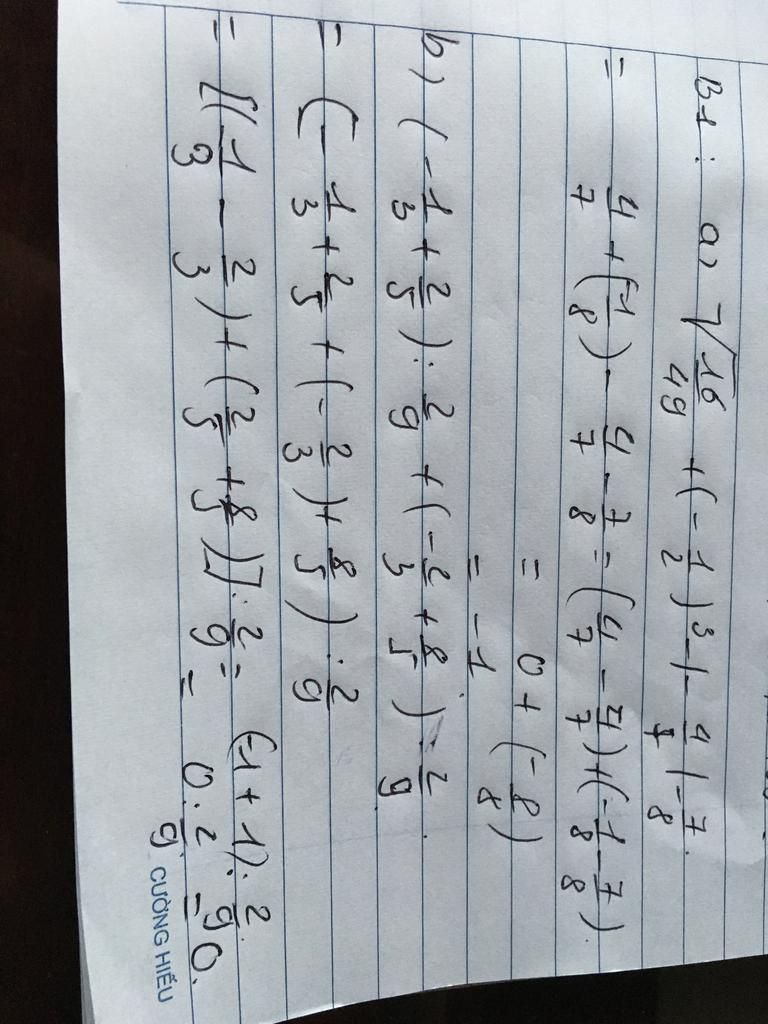 B1: a) √16/49 + (-1/2)³ - |-4/7| - 7/8.
= 4/7 + (-1/8) - 4/7 - 7/8 = (4/7 - 4/7) + (-1/8 - 7/8).
= 0 + (-8/8)
= -1.
b) (-1/3 + 2/5) : 2/9 + (-2/3 + 8/5) : 2/9.
= (-1/3 + 2/5 + (-2/3) + 8/5) : 2/9
= [(-1/3 - 2/3) + (2/5 + 8/5)] : 2/9 = (-1 + 1) : 2/9.
= 0 : 2/9 = 0.
CƯỜNG HIẾU